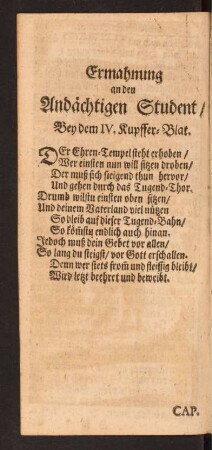 Ermahnung
an den
Andächtigen Student /
Bey dem IV. Kupffer-Blat.
DEr Ehren-Tempel steht erhoben /
Wer einsten nun will sitzen droben /
Der muß sich steigend thun hervor /
Und gehen durch das Tugend-Thor.
Drumb wilstu einsten oben sitzen /
Und deinem Vaterland viel nützen
So bleib auf dieser Tugend-Bahn /
So kom̃stu endlich auch hinan.
Jedoch muß dein Gebet vor allen /
So lang du steigst / vor Gott erschallen.
Denn wer stets from̃ und fleissig bleibt /
Wird letzt beehret und beweibt.
CAP.